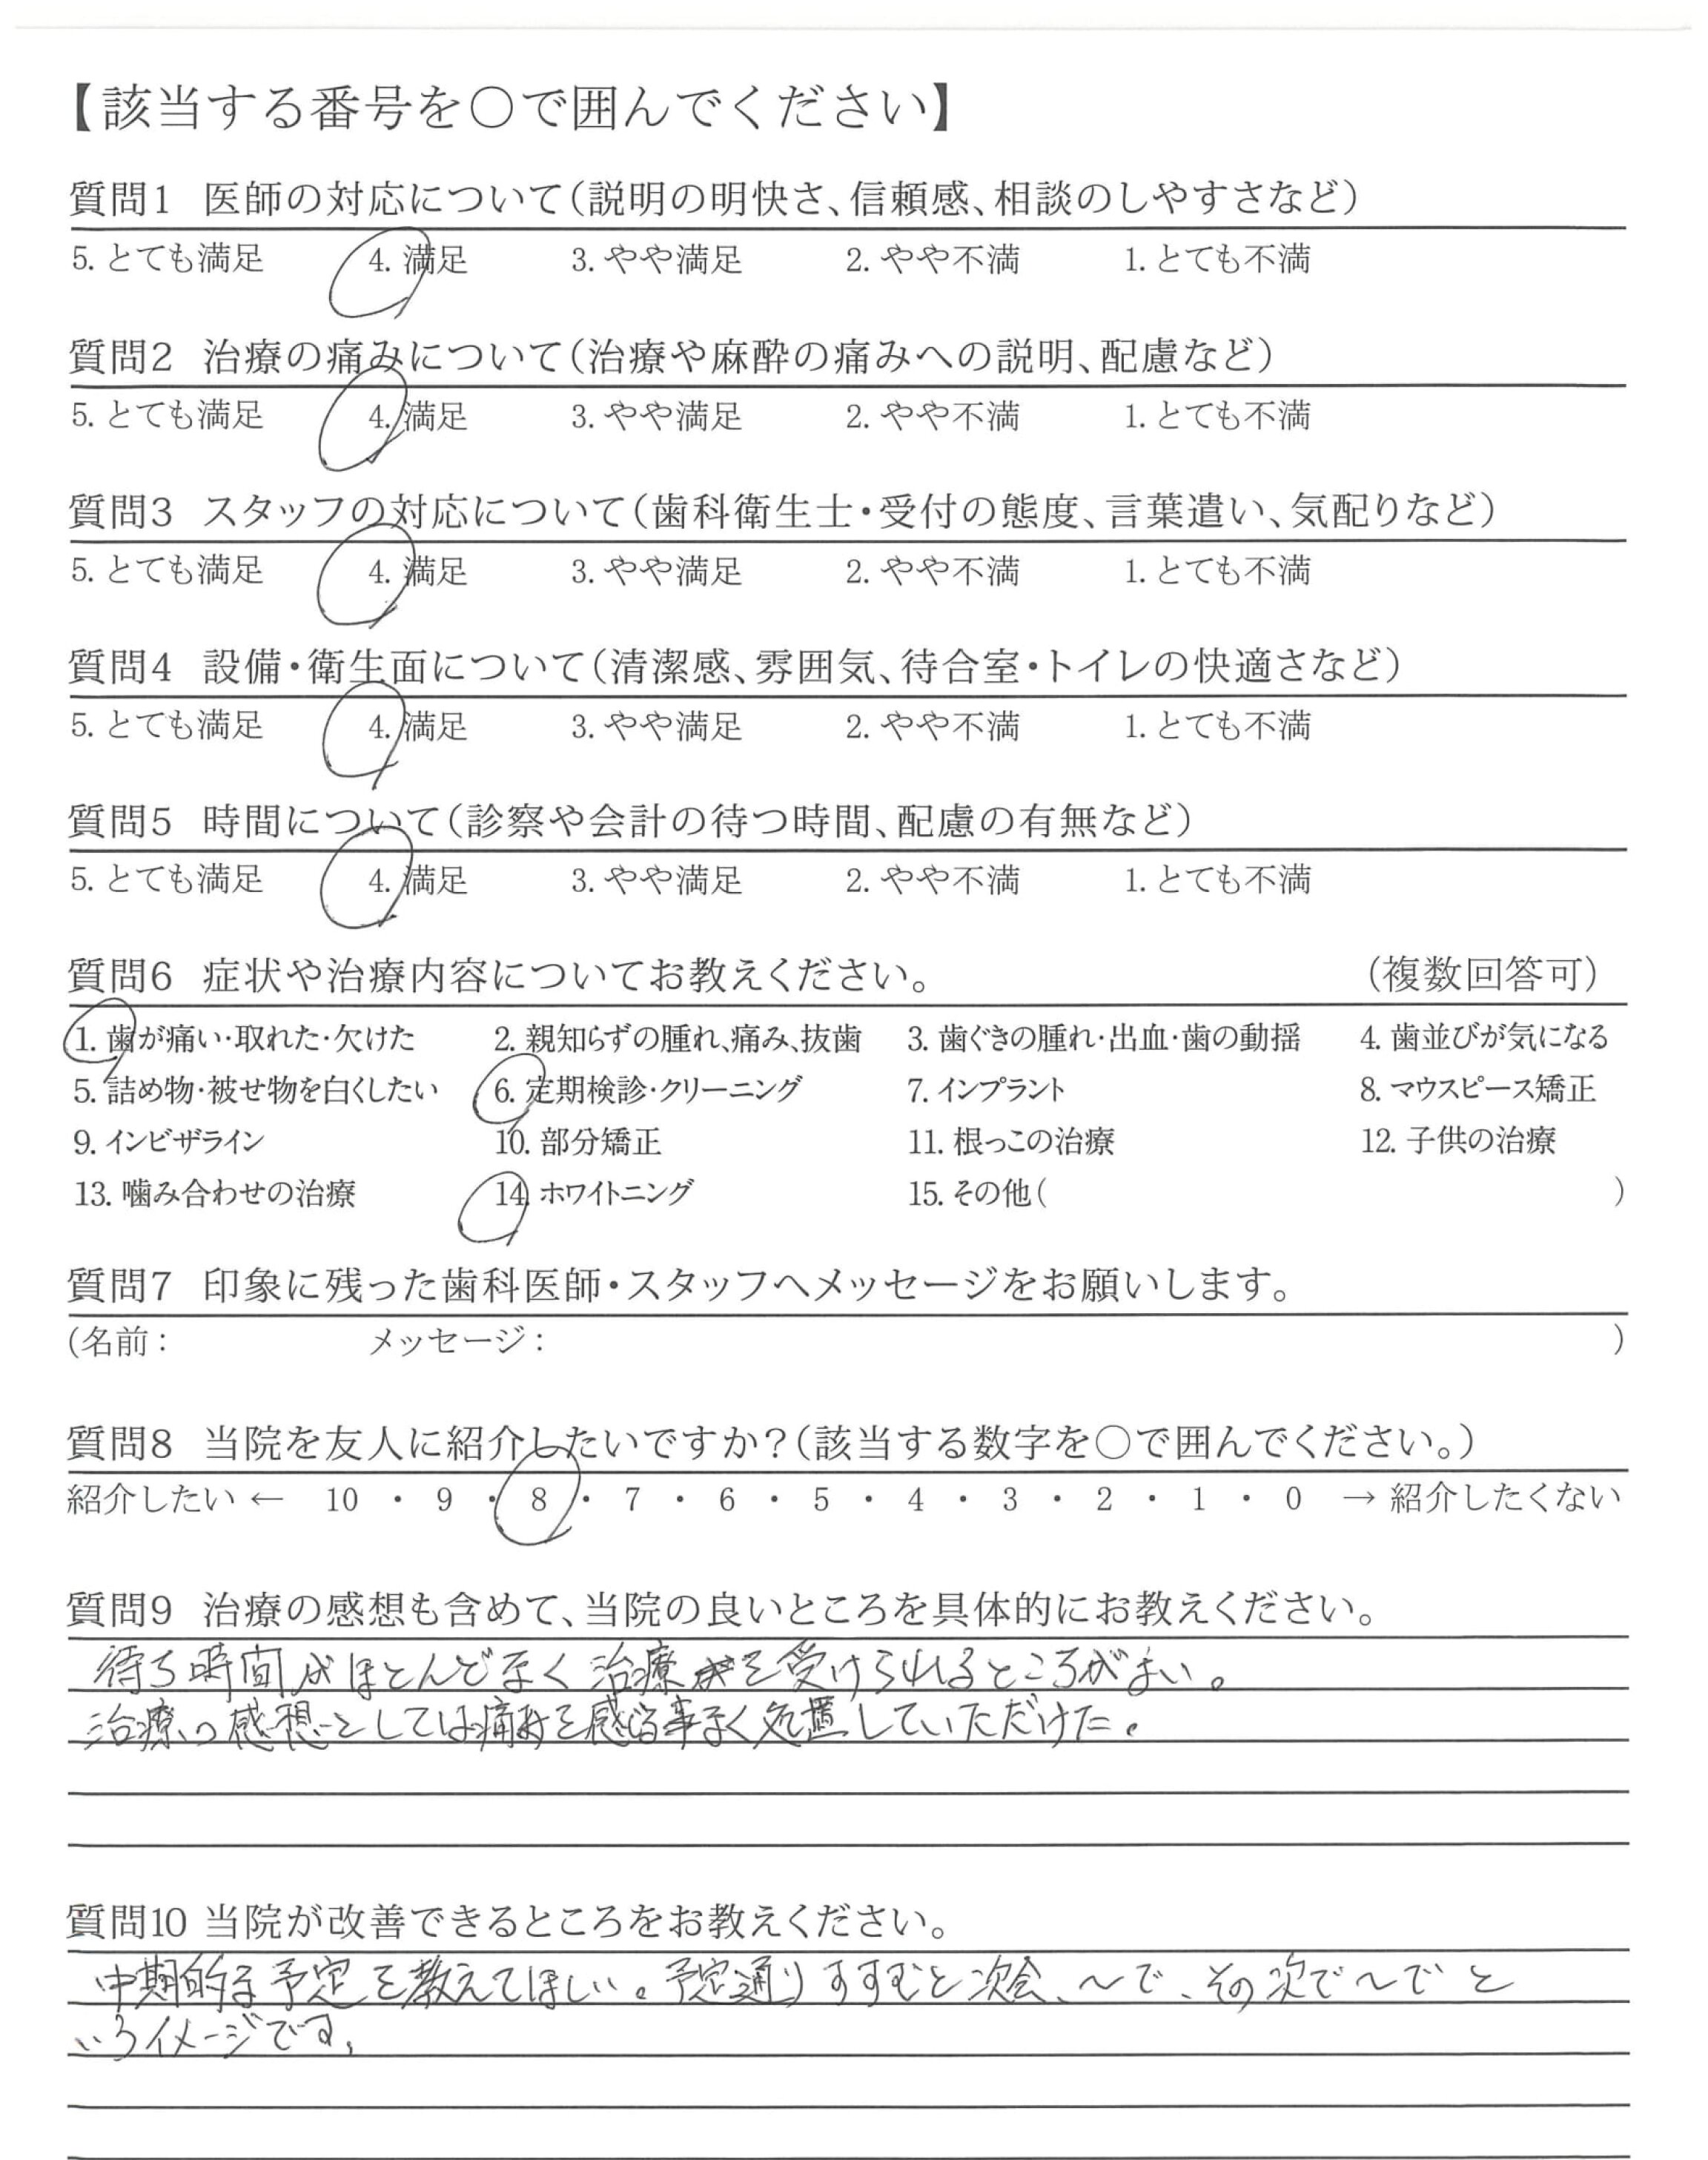 【該当する番号を○で囲んでください】
質問1 医師の対応について(説明の明快さ、信頼感、相談のしやすさなど)
5. とても満足 4. 満足 3. やや満足 2. やや不満 1. とても不満
質問2 治療の痛みについて(治療や麻酔の痛みへの説明、配慮など)
5. とても満足 4. 満足 3. やや満足 2. やや不満 1. とても不満
質問3 スタッフの対応について(歯科衛生士・受付の態度、言葉遣い、気配りなど)
5. とても満足 4. 満足 3. やや満足 2. やや不満 1. とても不満
質問4 設備・衛生面について(清潔感、雰囲気、待合室・トイレの快適さなど)
5. とても満足 4. 満足 3. やや満足 2. やや不満 1. とても不満
質問5 時間について(診察や会計の待つ時間、配慮の有無など)
5. とても満足 4. 満足 3. やや満足 2. やや不満 1. とても不満
質問6 症状や治療内容についてお教えください。 (複数回答可)
1. 歯が痛い・取れた・欠けた 2. 親知らずの腫れ、痛み、抜歯 3. 歯ぐきの腫れ・出血・歯の動揺 4. 歯並びが気になる
5. 詰め物・被せ物を白くしたい 6. 定期検診・クリーニング 7. インプラント 8. マウスピース矯正
9. インビザライン 10. 部分矯正 11. 根っこの治療 12. 子供の治療
13. 噛み合わせの治療 14. ホワイトニング 15. その他( )
質問7 印象に残った歯科医師・スタッフへメッセージをお願いします。
(名前: メッセージ: )
質問8 当院を友人に紹介したいですか?(該当する数字を○で囲んでください。)
紹介したい ← 10 ・ 9 ・ 8 ・ 7 ・ 6 ・ 5 ・ 4 ・ 3 ・ 2 ・ 1 ・ 0 → 紹介したくない
質問9 治療の感想も含めて、当院の良いところを具体的にお教えください。
待ち時間がほとんどなく治療を受けられるところがよい。
治療の感想としては痛みを感る事なく処置していただけた。
質問10 当院が改善できるところをお教えください。
中期的な予定を教えてほしい。予定通りすすむと次会、〜で、その次で〜でと
いうイメージです。